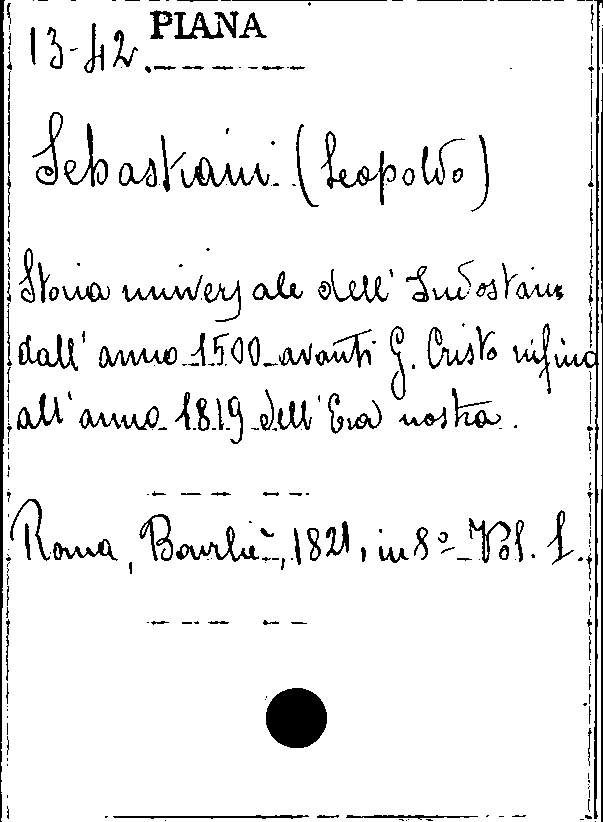 PIANA
13-42
Sebastiani (Leopoldo)
Storia universale dell' Indostano
dall' anno 1500 avanti G. Cristo infino
all' anno 1819 dell' Era nostra.
Roma, Bourliè, 1821, in 8º Vol. 1.